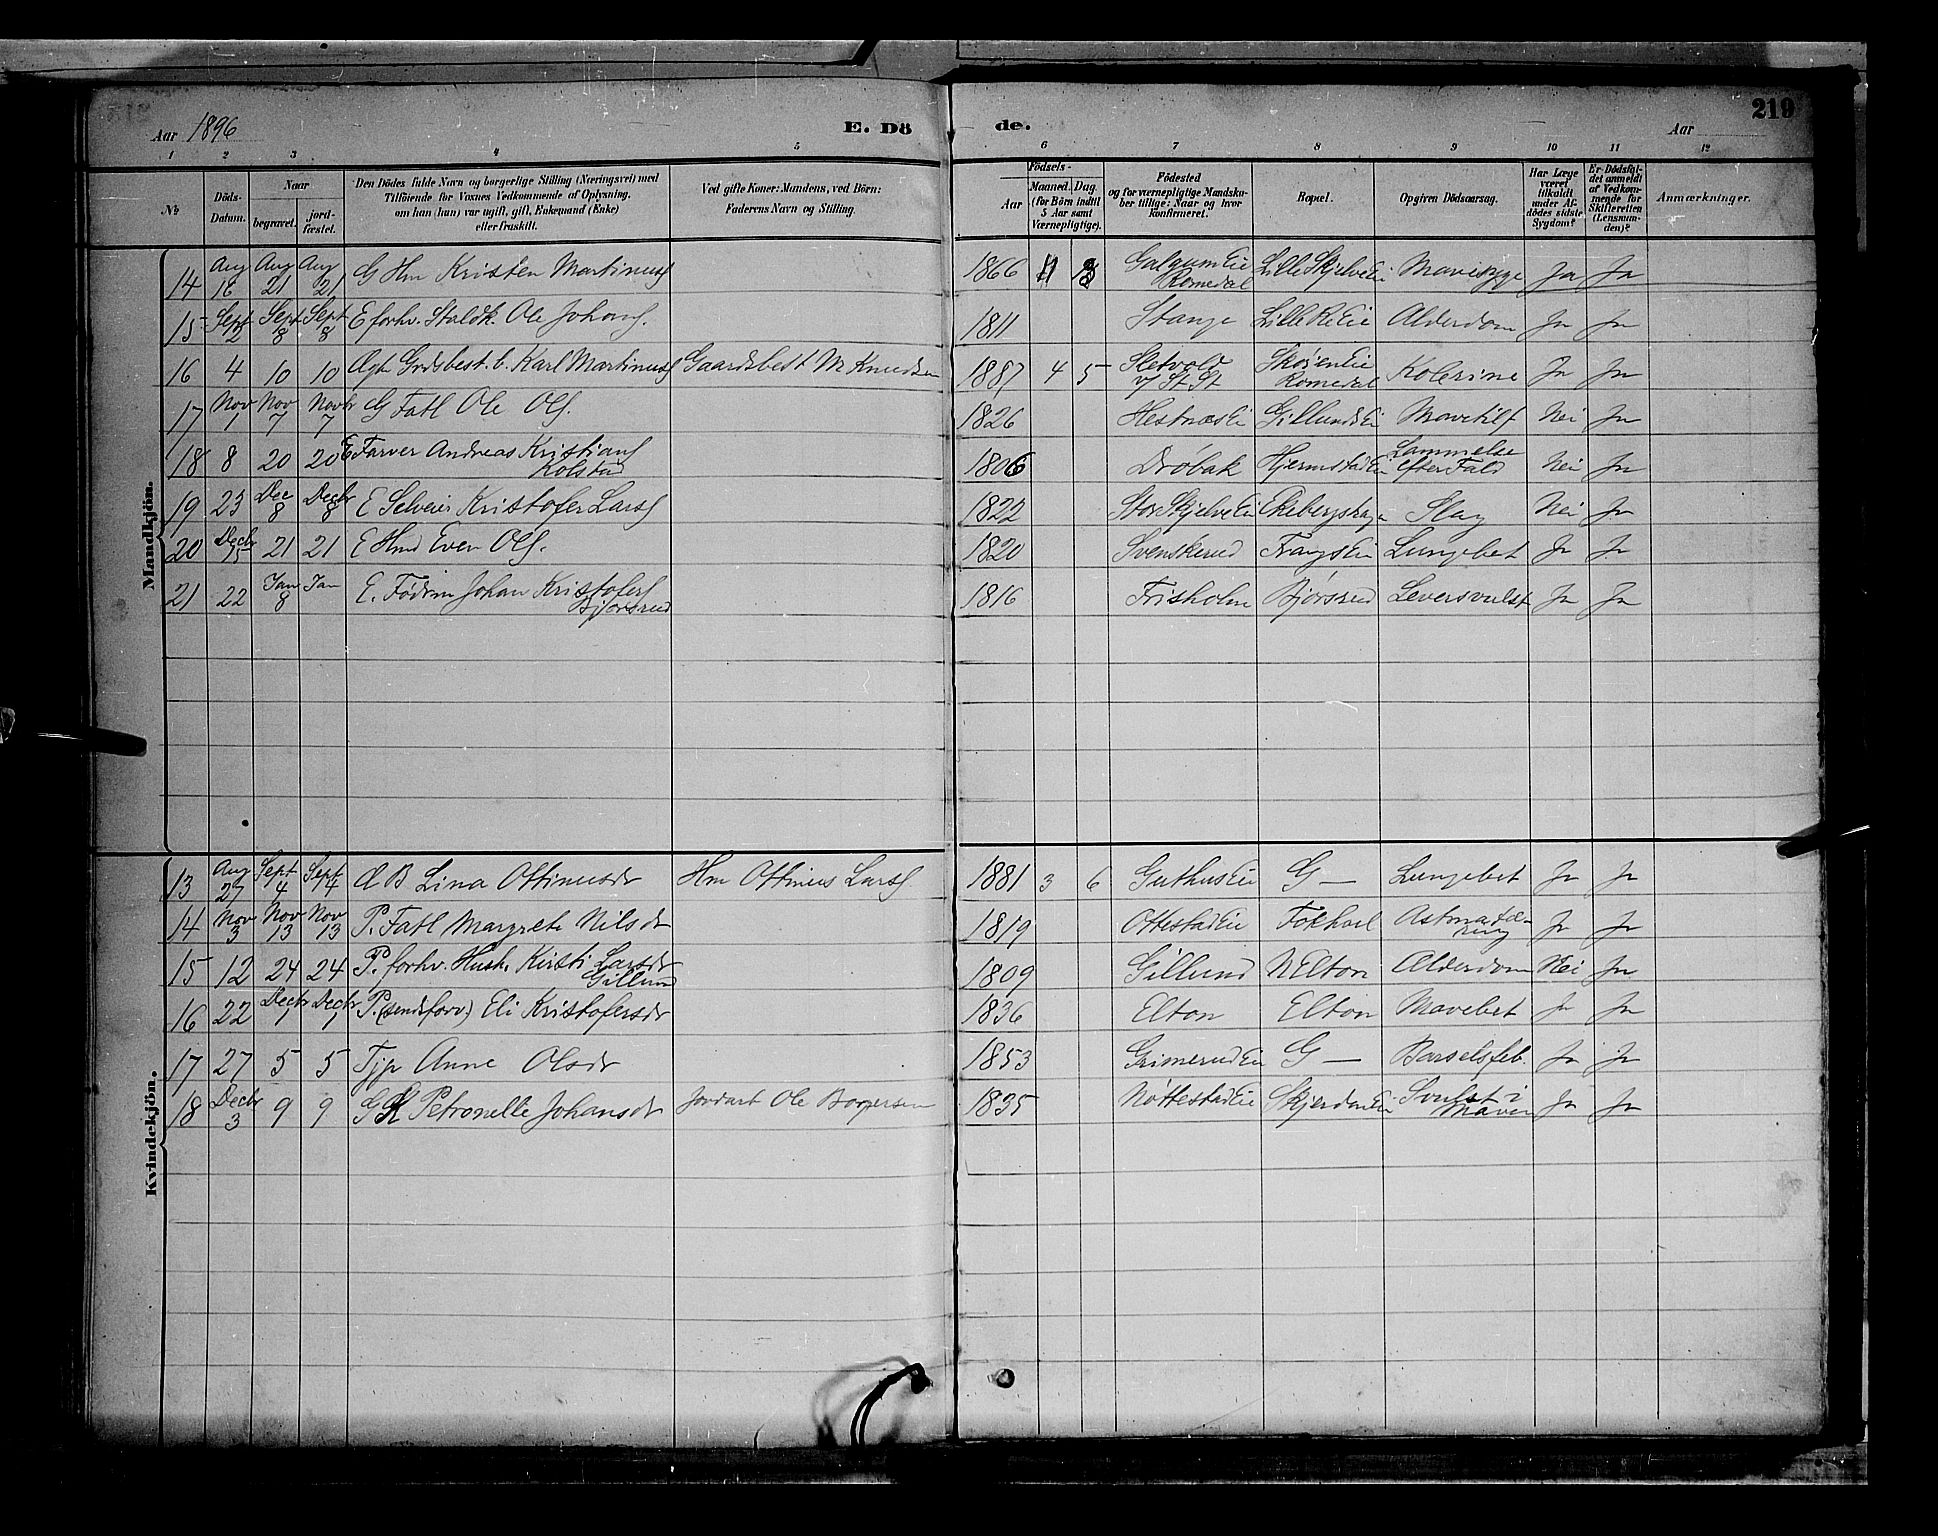 Aar 1896 E. Dö de. 219
Aar
1 2 3 4 5 6 7 8 9 10 11 12
№
Döds-Datum.
Naar
begravet.
jord-fæstet.
Den Dödes fulde Navn og borgerlige Stilling (Næringsvei) med
Tilföiende for Voxnes Vedkommende af Oplysning,
om han (hun) var ugift, gift, Enkemand (Enke)
eller fraskilt.
Ved gifte Koner: Mandens, ved Börn:
Faderens Navn og Stilling.
Födsels-
Aar
Maaned. Dag.
(for Börn indtil
5 Aar samt
Værnepligtige).
Födested
og for værnepligtige Mandska-
ber tillige: Naar og hvor
konfirmeret.
Bopæl.
Opgiven Dödsaarsag.
Har Læge
været
tilkaldt
under Af-
dödes sidste
Sygdom?
Er Dödsfal-
det anmeldt
af Vedkom-
mende for
Skifteretten
(Lensman-
den)?
Anmærkninger.
Mandkjön.
14 Aug 16 Aug 21 Aug 21 G Hm Kristen Martinus 1866 Galgum Eie Romedal Lille Skjelve Ei Mavesyge Ja Ja
15 Sept 2 Sept 8 Sept 8 E forhv. Staldk. Ole Johans. 1811 Stange Lille Re Eie Alderdom Ja Ja
16 4 10 10 Ægt Grdsbest. b. Karl Martinus Gaardsbest M Knudsen 1887 4 5 Sletvold v/ St. St Skosen Eie Romedal Kolerine Ja Ja
17 Nov 1 Nov 7 Novbr 7 G Fatl Ole Ols. 1826 Hestnæs Ei Gillunds Ei Mavetilf Nei Ja
18 8 20 20 E Farver Andreas Kristians Kolstad 1806 Dröbak Hjermstad Ei Lammelse efter Fald Nei Ja
19 23 Dec 8 Decbr 8 E Selveier Kristofer Lars 1822 Stor Skjelve Ei Ekeberghagen Slag Nei Ja
20 Decbr 15 21 21 E Hmd Even Ols. 1820 Svenskerud Frangs Eie Lungebet Ja Ja
21 22 Jan 8 Jan E. Födrm Johan Kristofers Bjørsrud 1816 Frisholm Bjørsrud Leversvulst Ja Ja
Kvindekjön.
13 Aug 27 Sept 4 Sept 4 Æ B Lina Ottinusdr Hm Ottinus Lars. 1881 3 6 Guthus Eie G — Lungebet Ja Ja
14 Nov 3 Nov 13 Nov 13 P. Fatl Margrete Nilsdr 1819 Ottestad Eie Fokhol Astma Ja Ja
15 12 24 24 P. forhv. Hush. Kirsti Larsdr Gillund 1809 Gillund N Elton Alderdom Nei Ja
16 22 Decbr 1 Decbr 1 P. (sindsforv.) Eli Kristofersdr 1836 Elton Elton Mavebet Ja Ja
17 27 5 5 Tjp Anne Olsdr 1853 Grimerud Eie G — Barselsfeb. Ja Ja
18 Decbr 3 9 9 GK Petronelle Johansdr Jordart Ole Borgersen 1835 Nöttestad Eie Skjerden Ei Svulst i Maven Ja Ja